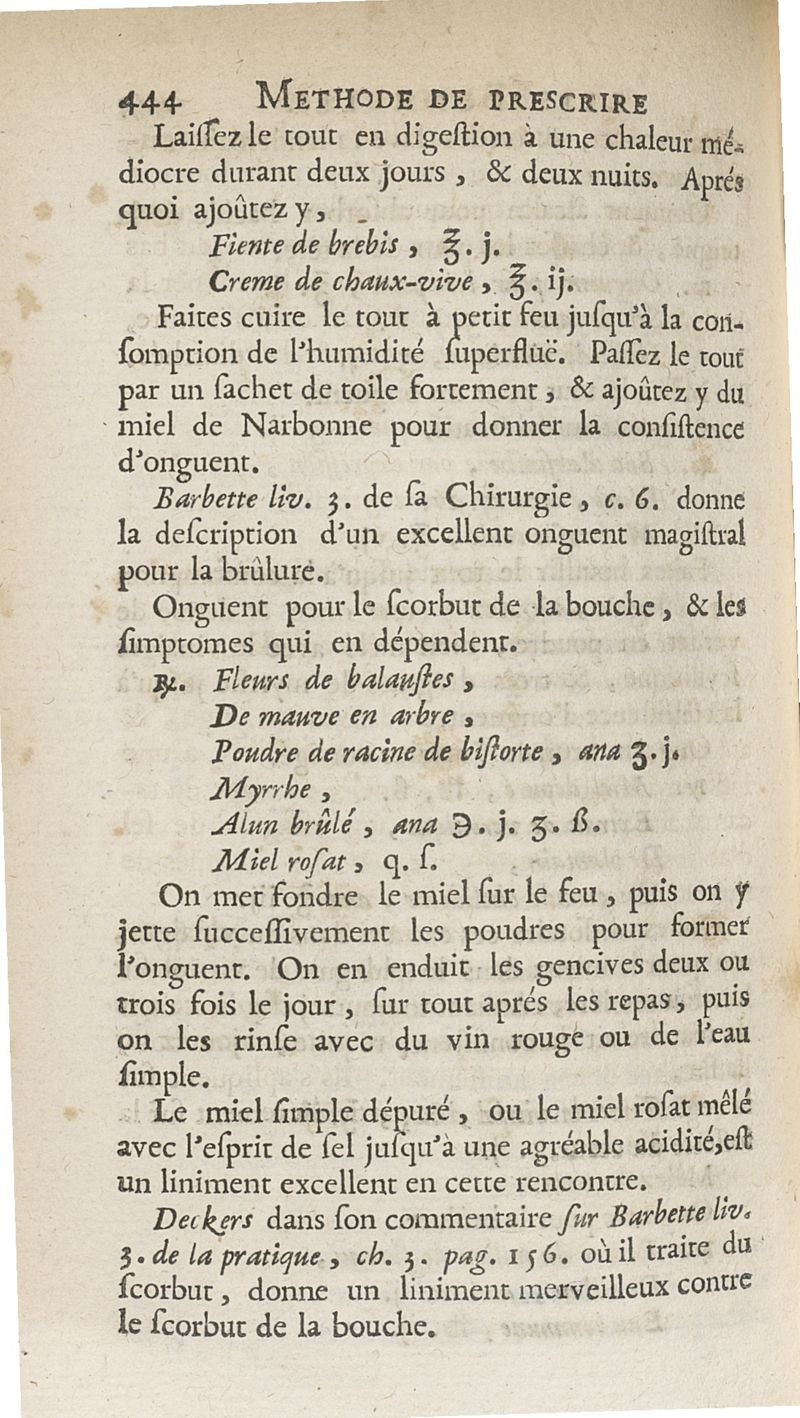 444 METHODE DE PRESCRIRE
Laiſſez le tout en digeſtion à une chaleur mé-
diocre durant deux jours, & deux nuits. Aprés
quoi ajoûtez y,
Fiente de brebis, ℥. j.
Creme de chaux-vive, ℥. ij.
Faites cuire le tout à petit feu juſqu'à la con-
ſomption de l'humidité ſuperfluë. Paſſez le tout
par un ſachet de toile fortement, & ajoûtez y du
miel de Narbonne pour donner la conſiſtence
d'onguent.
Barbette liv. 3. de ſa Chirurgie, c. 6. donne
la deſcription d'un excellent onguent magiſtral
pour la brûlure.
Onguent pour le ſcorbut de la bouche, & les
ſimptomes qui en dépendent.
℞. Fleurs de balauſtes,
De mauve en arbre,
Poudre de racine de biſtorte, ana ʒ. j.
Myrrhe,
Alun brûlé, ana ℈. j. ʒ. ß.
Miel roſat, q. ſ.
On met fondre le miel ſur le feu, puis on y
jette ſucceſſivement les poudres pour former
l'onguent. On en enduit les gencives deux ou
trois fois le jour, ſur tout aprés les repas, puis
on les rinſe avec du vin rouge ou de l'eau
ſimple.
Le miel ſimple dépuré, ou le miel roſat mêlé
avec l'eſprit de ſel juſqu'à une agréable acidité, eſt
un liniment excellent en cette rencontre.
Deckers dans ſon commentaire ſur Barbette liv.
3. de la pratique, ch. 3. pag. 156. où il traite du
ſcorbut, donne un liniment merveilleux contre
le ſcorbut de la bouche.